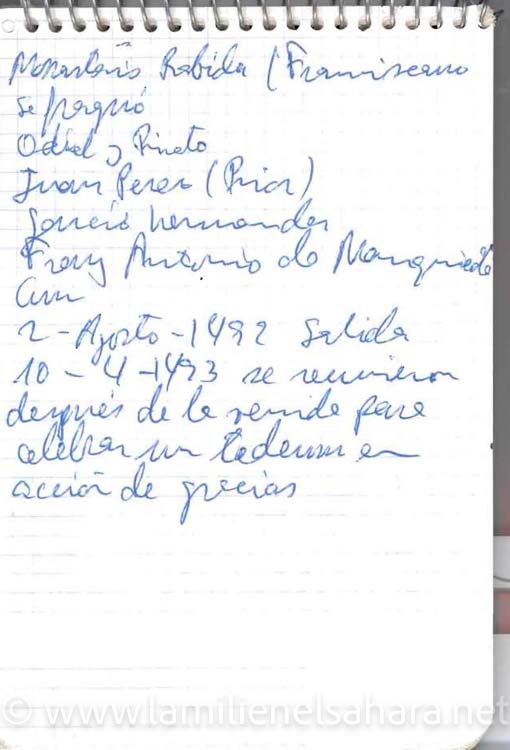 Monasterio Rabida (Franciscano
se fraguó
Odiel y
Juan Perez (Prior)
García Hernandez
Fray Antonio de
2-Agosto-1492 Salida
10-4-1493 se reunieron
después de la venida para
celebrar un tedeum en
acción de gracias
© www.lamilienelsahara.net